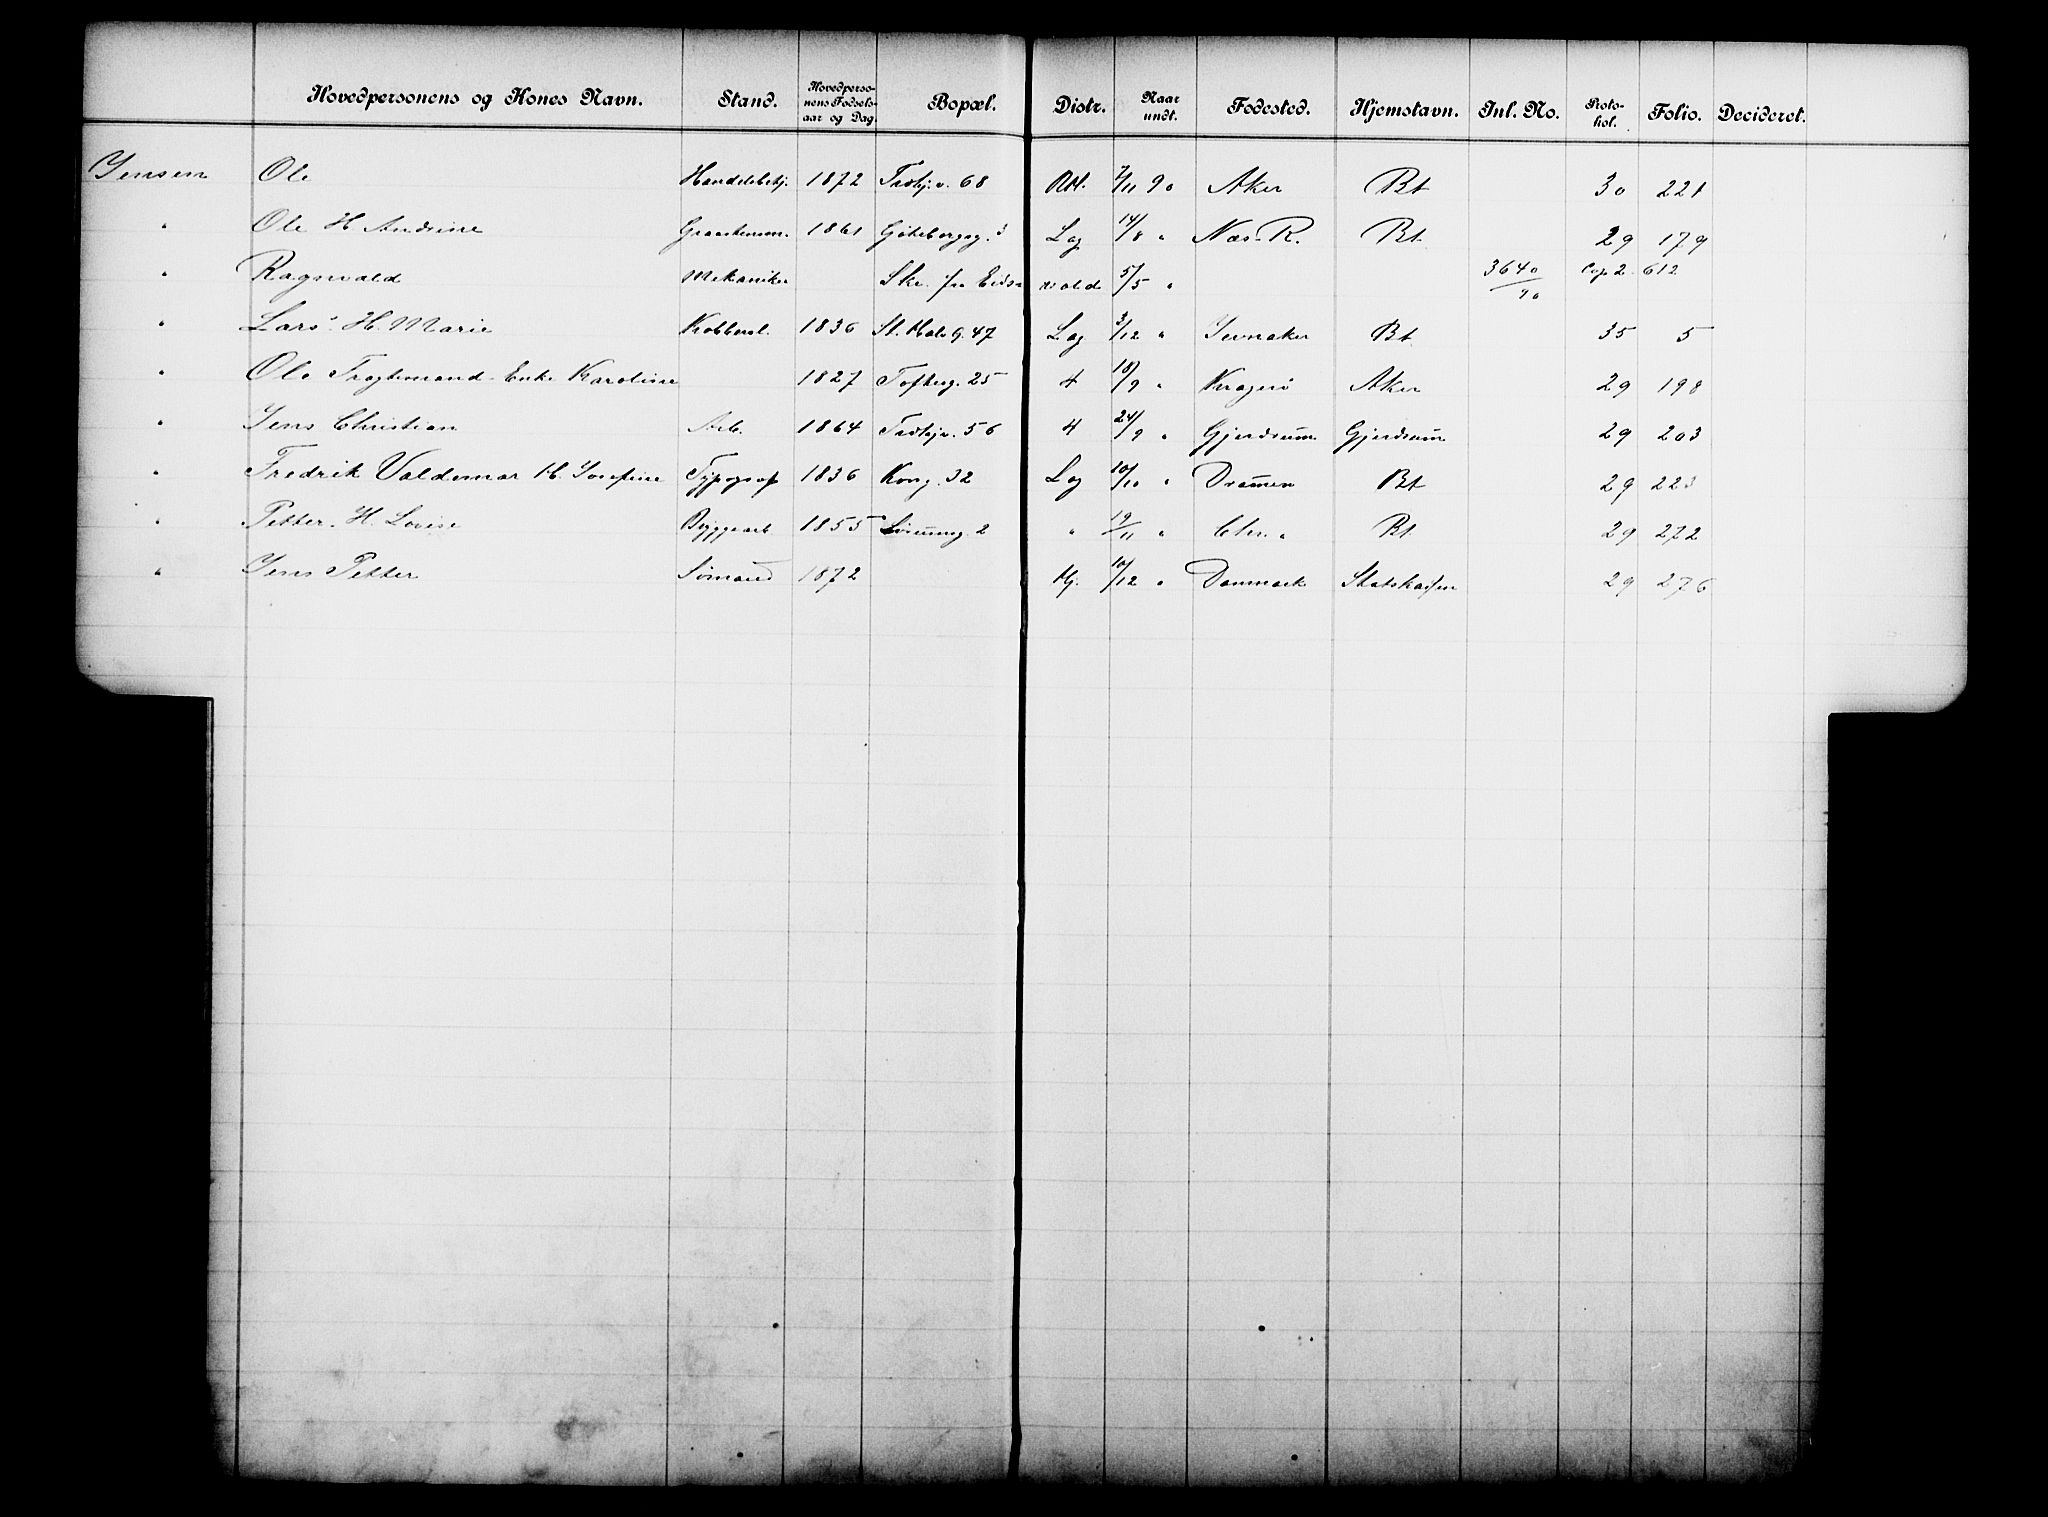 Hovedpersonens og Kones Navn. Stand. Hovedperso-nens Fødsels-aar og Dag. Bopæl. Distr. Naar undt. Fødested. Hjemstavn. Jnl. No. Proto-kol. Folio. Decideret.
Jensen Ole Handelsbetj. 1872 68 7/11 90 Aker Bt 30 221
" Ole H. Andrine 1861 Göteborgg. 3 Lag 14/8 " Næs. R. Bt. 29 179
" Ragnvald Mekaniker Ske. fra Eidsvold 5/5 " 3640/90 Cop. 2. 612
" Lars H. Marie Kobbersl. 1836 St. Halv. g. 47 Lag 3/12 " Jevnaker Bt 35 5
" Ole Fragtemand Enke Karoline 1827 Tofteg. 25 4 18/9 " Kragerø Aker 29 198
" Jens Christian Arb. 1864 56 4 24/9 " Gjerdrum Gjerdrum 29 203
" Fredrik Valdemar H. Josefine Typograf 1836 Kong. 32 Lag 10/10 " Dramen Bt 29 223
" Petter. H. Lovise Byggearb. 1855 Sørumg. 2 " 19/11 " Chr. a Bt. 29 272
" Jens Petter Sømand 1872 Hj. 10/12 " Danmark Statskassen 29 276